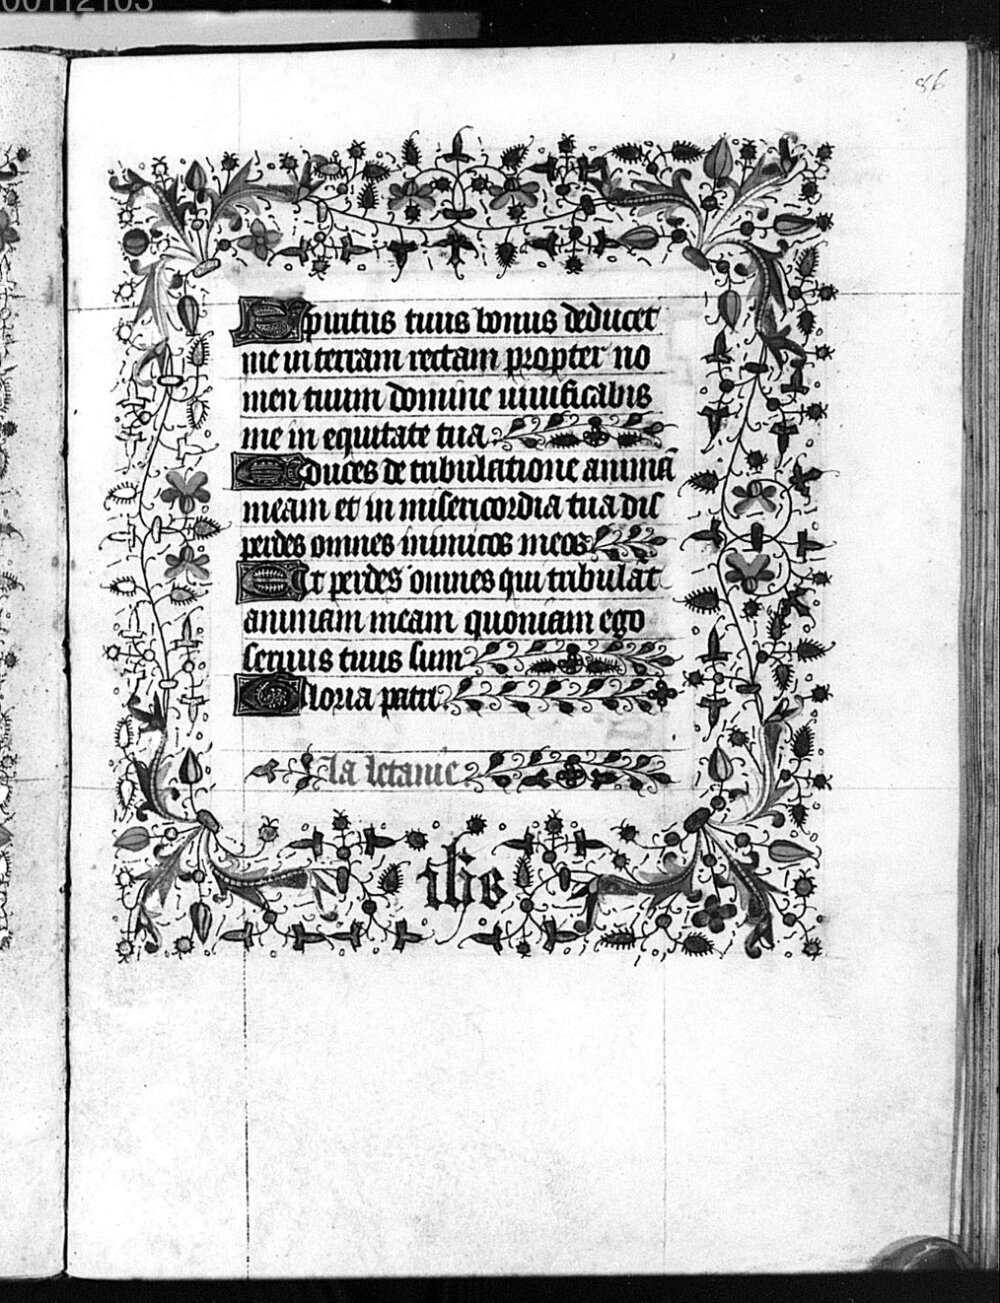 00112103
86
Spiritus tuus bonus deducet
me in terram rectam propter no
men tuum domine uiuificabis
me in equitate tua
Educes de tribulatione animā
meam et in misericordia tua dis
perdes omnes inimicos meos
Et perdes omnes qui tribulāt
animam meam quoniam ego
seruus tuus sum
Gloria patri
la letanie
ihs